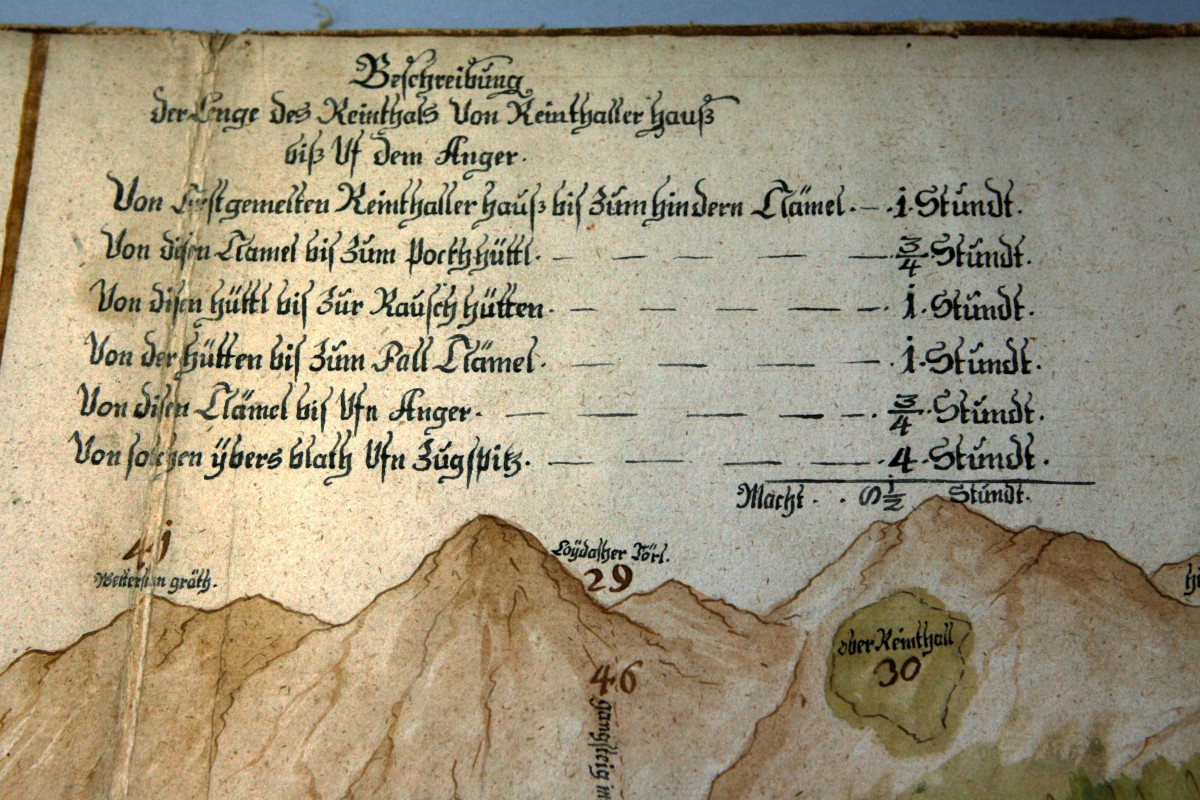 Beschreibung
der Enge des Reinthals Von Reinthaller hauß
biß Vf dem Anger.
Von Erstgemelten Reinthaller hauß biß Zum hindern Clämel. — 1. Stündt.
Von disen Clamel biß Zum Pockhhüttl. — — — — — 3/4 Stündt.
Von disen hüttl biß Zur Rausch hütten. — — — — — 1. Stündt.
Von der hütten biß Zum Fall Clämel. — — — — 1. Stündt.
Von disen Clämel biß Vfn Anger. — — — — — 3/4 Stündt.
Von solchen ÿbers blath Vfn Zugspitz. — — — — 4. Stündt.
Macht . . 8 1/2 Stündt.
41
gräth.
Törl.
29
ober Reinthall
30
46
gangsteig